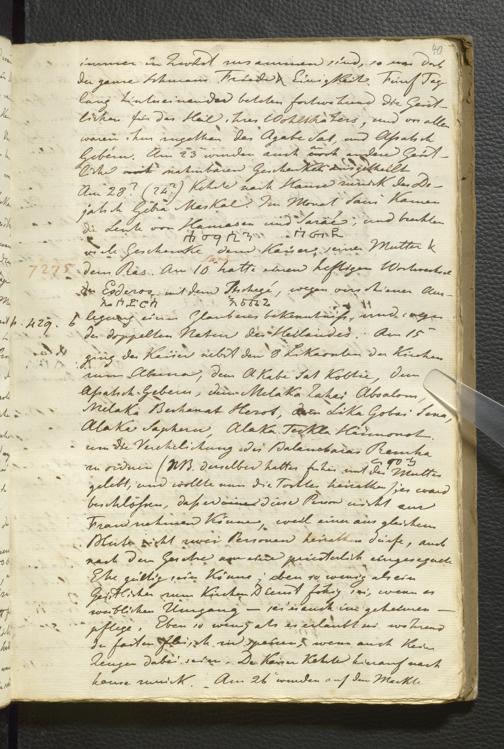 40
immer in Zwohst zusammen sind, so war doch
der ganze Schmaus Friede & Einigkeit. Fünf Tag
lang hintereinander beteten fortwährend die Geist-
lichen für das Heil ihres Wohlthäters, und vor allen
waren ihm zugethan des Agabe Sat, und Apatsch
Gebern. Am 23 wurden auch andern Geist-
liche mit Geschenken
Am 28? (24?) Kehrte nach Hause zurück der De-
jatsch Geta Maskal. Im Monat Sani kamen
die Leute von Hamasen und Sarae, und brachten
viele Geschenke dem Kaiser, seiner Mutter &
7275
dem Ras. Am 10 hatte einen heftigen Wortwechsel
Esderos mit dem wegen verschiener Aus-
p. 429. b
legung eines Glaubensbekenntniss, und wegen
der doppelten Natur des Heilandes. Am 15
ging der Kaiser nebst den Likaonten der Kirchen
zum Abuna, dem Akabi Sat Kobtie, dem
Apatsch Gebern, dem Melaka Zahai Absalom,
Melaka Berhanat Herot, dem Lika Gobai Sena,
Alaka Saphera, Alaka Teekla Haimonot
um die Verehelichung des Balambaras Remha
zu ordnen (NB. derselbe hatte früher mit der Mutter
gelebt, und wollte nun die Tochter heirathen) es ward
beschlossen, dass einer diese Person nicht zur
Frau nehmen könne, weil einer aus gleichem
Blute nicht zwei Personen heirathen dürfe, auch
nach dem Gesetze nur eine priesterlich eingesegnete
Ehe gültig sein könne, eben so wenig als ein
Geistlicher zum Kirchen Dienst fähig sei, wenn er
weiblichen Umgang – sei es auch im geheimen –
pflege. Eben so wenig als es erlaubt sei während
der Fasten Fleisch zu wenn auch kein
Zeugen dabei seien. Der Kaiser kehrte hierauf nach
Hause zurück. – Am 26 wurden auf dem Markte